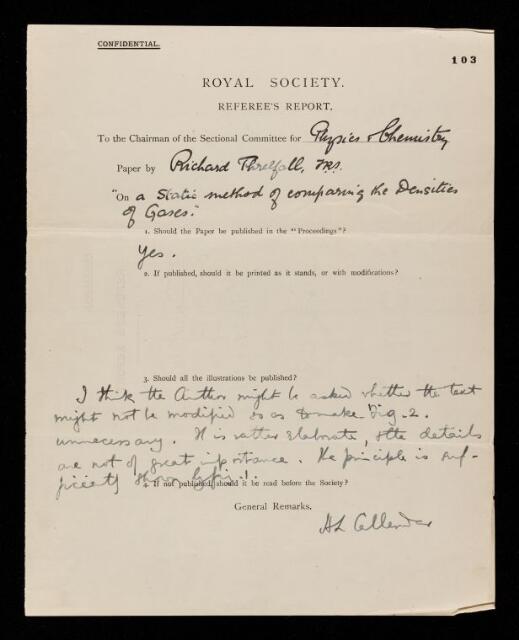 CONFIDENTIAL.
103
ROYAL SOCIETY.
REFEREE'S REPORT.
To the Chairman of the Sectional Committee for Physics & Chemistry
Paper by Richard Threlfall, FRS.
"On a Static method of comparing the Densities
of Gases."
1. Should the Paper be published in the "Proceedings"?
Yes.
2. If published, should it be printed as it stands, or with modifications?
3. Should all the illustrations be published?
I think the Author might be asked whether the text
might not be modified so as to make Fig. 2.
unnecessary. It is rather elaborate, & the details
are not of great importance. The principle is suf-
ficiently shown by Fig. 1.
4. If not published, should it be read before the Society?
General Remarks.
H L Callendar